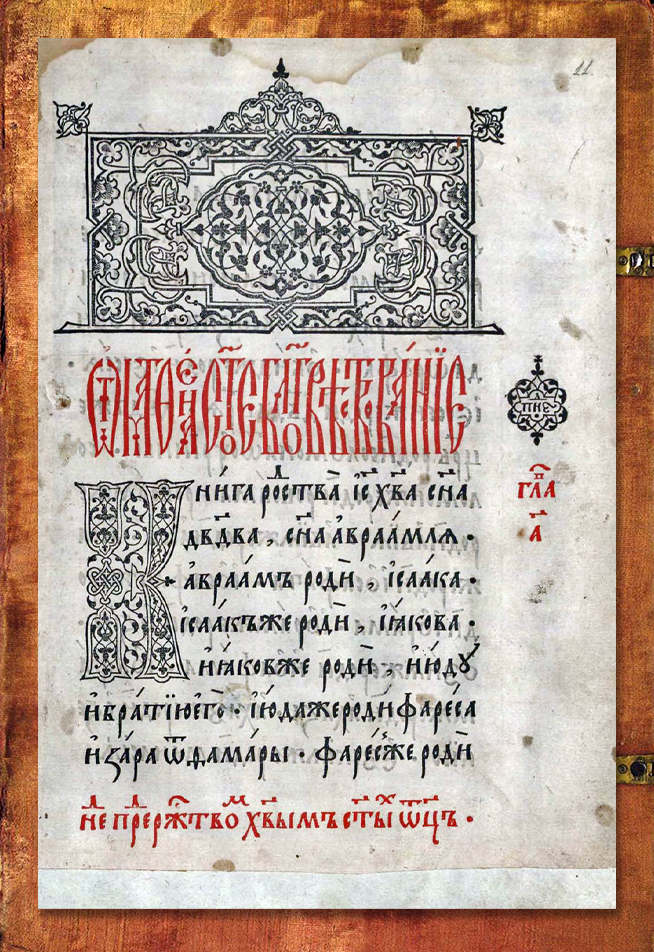 11.
Ѿ маѳⷣеа ст҃ое бл҃говѣствованїе
пн҃е
Книга роⷭства і҃с хв҃а сн҃а
дв҃два , сн҃а авраамлѧ ·
авраамъ роди , ісаака ·
ісаакъже роди , іꙗкова ·
иꙗковже роди , июдꙋ
ибратїюего · іюдажероди фареса
изара ѿдамары · фаресже роди
гл҃а
а҃
не преⷣ рж҃твоⷨ хв҃ымъ ст҃ыⷯ ѿц҃ъ ·